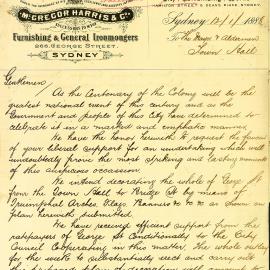 McGREGOR HARRIS & Co.
Furnishing & General Ironmongers
266, GEORGE STREET.
SYDNEY
Sydney 12/1/1888
To the Mayor & Aldermen
Town Hall
Gentlemen
As the Centenary of the Colony will be the
greatest national event of this century and as the
Government and people of this City are determined to
celebrate it in a marked and emphatic manner
We have the honor herewith to request the favour
of your liberal support for an undertaking which will
undoubtedly prove the most striking and lasting memento
of this auspicious occasion.
We intend decorating the whole of George St
from the Town Hall to Bridge St by means of
Triumphal Arches Flags Banners &c &c as shown on
plan herewith submitted.
We have received efficient support from the
ratepayers of George St Conditionally to the City
Council Cooperating in this matter. The whole outlay
for the work to substantially erect and carry out